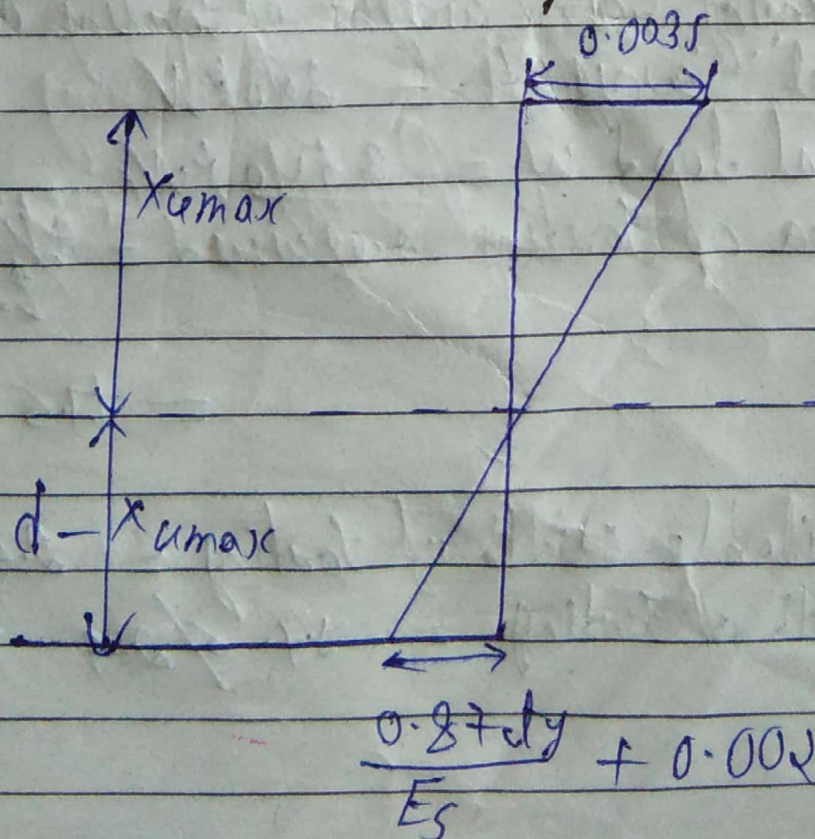 0.0035
xumax
d - xumax
0.87fy
Es
+ 0.002